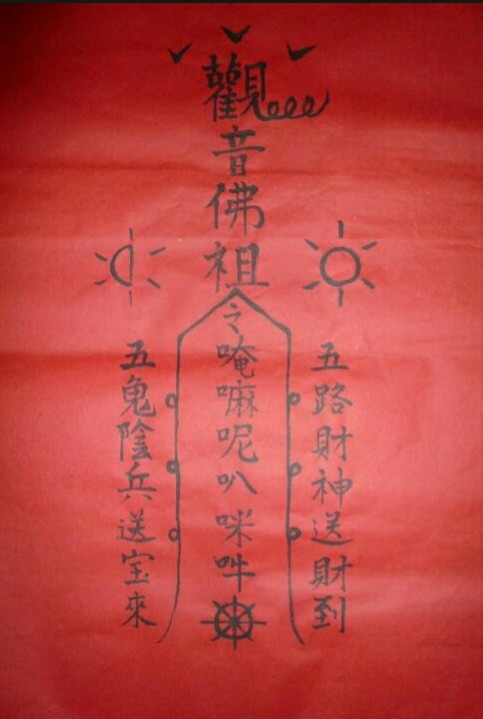 觀音佛祖令唵嘛呢叭咪吽
五路財神送財到
五鬼陰兵送宝來